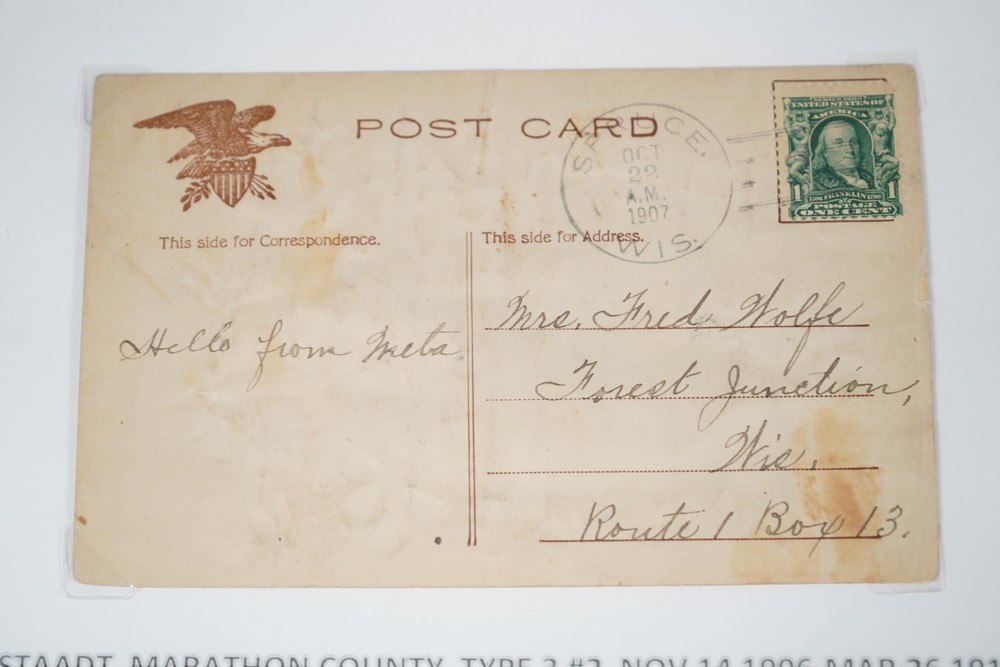 POST CARD
SPRUCE.
OCT
22
A.M.
1907
WIS.
SERIES 1902
UNITED STATES OF
AMERICA
1 1
1706 FRANKLIN 1790
POSTAGE
ONE CENT
This side for Correspondence.
This side for Address.
Hello from Meta
Mrs. Fred Wolfe
Forest Junction,
Wis.
Route 1 Box 13.
STAADT, MARATHON COUNTY, TYPE 3 #2, NOV 14 1906-MAR 26 191